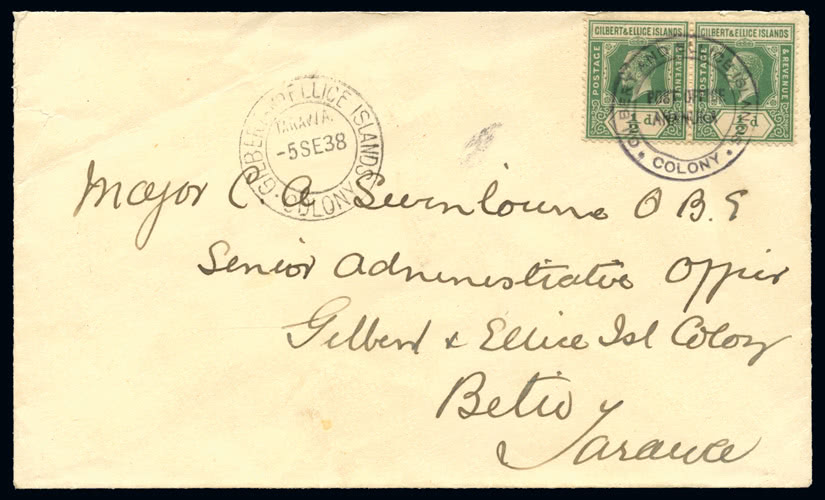 GILBERT & ELLICE ISLANDS GILBERT & ELLICE ISLANDS
POSTAGE & REVENUE POSTAGE & REVENUE
½d ½d
GILBERT AND ELLICE ISLANDS
POST OFFICE
COLONY
GILBERT AND ELLICE ISLANDS
TARAWA.
-5SE38
COLONY
Major C. A. Swinbourne O B. E
Senior Administrative Officer
Gilbert & Ellice Isl Colony
Betio
Tarawa